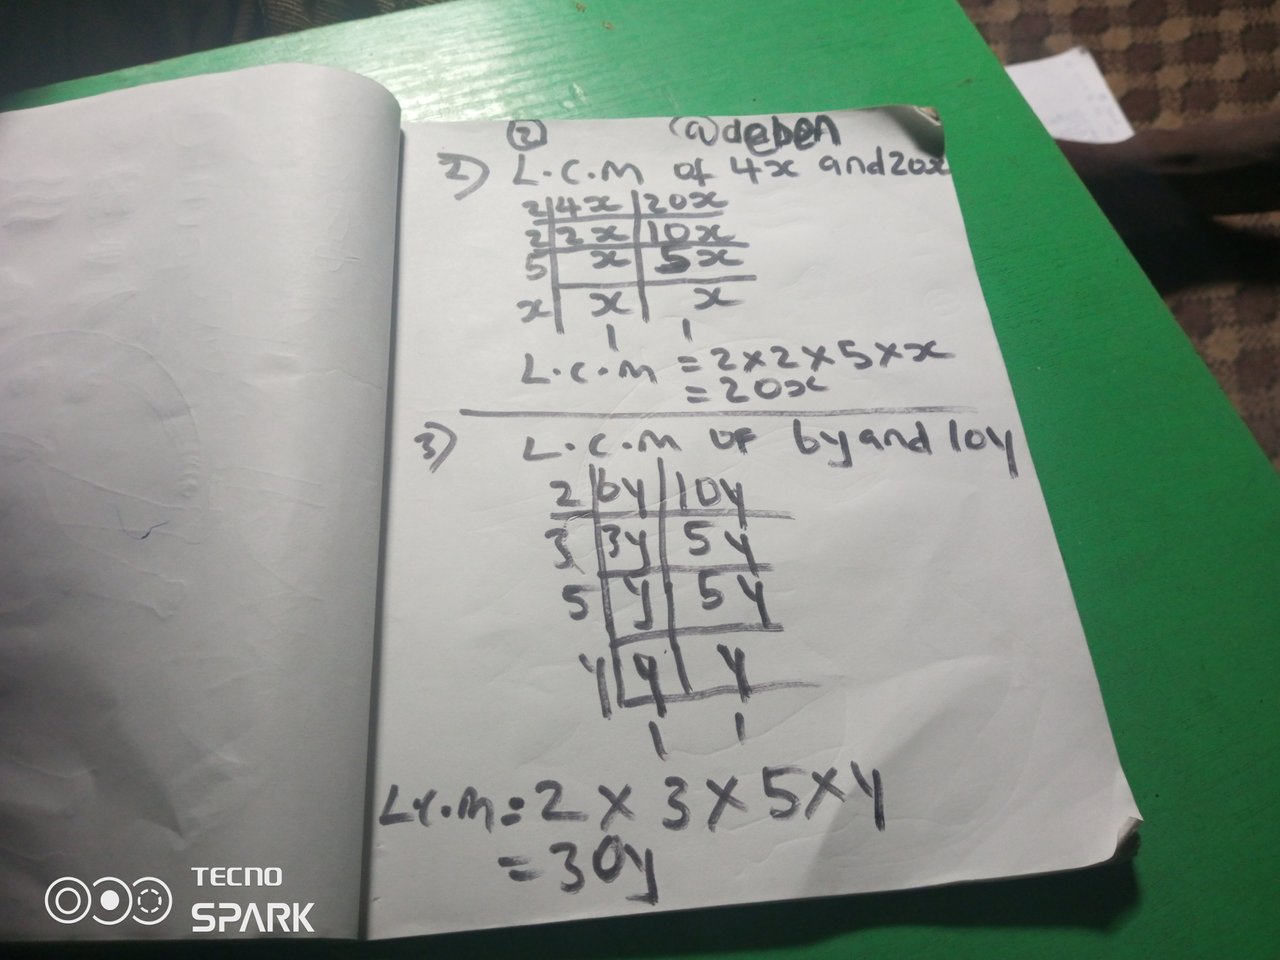 ② @deben
2) L.C.M of 4x and 20x
2 | 4x | 20x
2 | 2x | 10x
5 | x | 5x
x | x | x
1 1
L.C.M = 2 × 2 × 5 × x
= 20x
3) L.C.M OF 6y and 10y
2 | 6y | 10y
3 | 3y | 5y
5 | y | 5y
y | y | y
1 1
L.C.M = 2 × 3 × 5 × y
= 30y
TECNO
SPARK